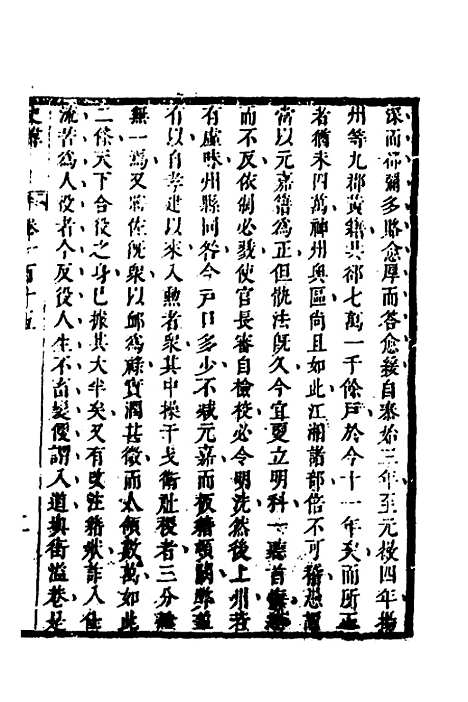 深而卻彌多賂愈厚而答愈緩自泰始三年至元徽四年揚
州等九郡黃籍共卻七萬一千餘戶於今十一年矣而所正
者猶未四萬神州奧區尚且如此江湘諸部倍不可
當以元嘉籍爲正但㡣法既久今宜更立明科一聽首
而不反依制必戮使官長審自檢校必令明洗然後上州
有虛昧州縣同咎今戶口多少不減元嘉而板籍頓闕弊
有以自孝建以來入勲者衆其中操干戈衛社稷者三分
無一焉又將位既衆以卹爲祿實潤甚微而人領數萬如此
二條天下合役之身已據其大半矣又有改注籍狀詐入仕
流苦爲人役者今反役人生不畜髮便謂入道塡街溢巷是
卷一百十五